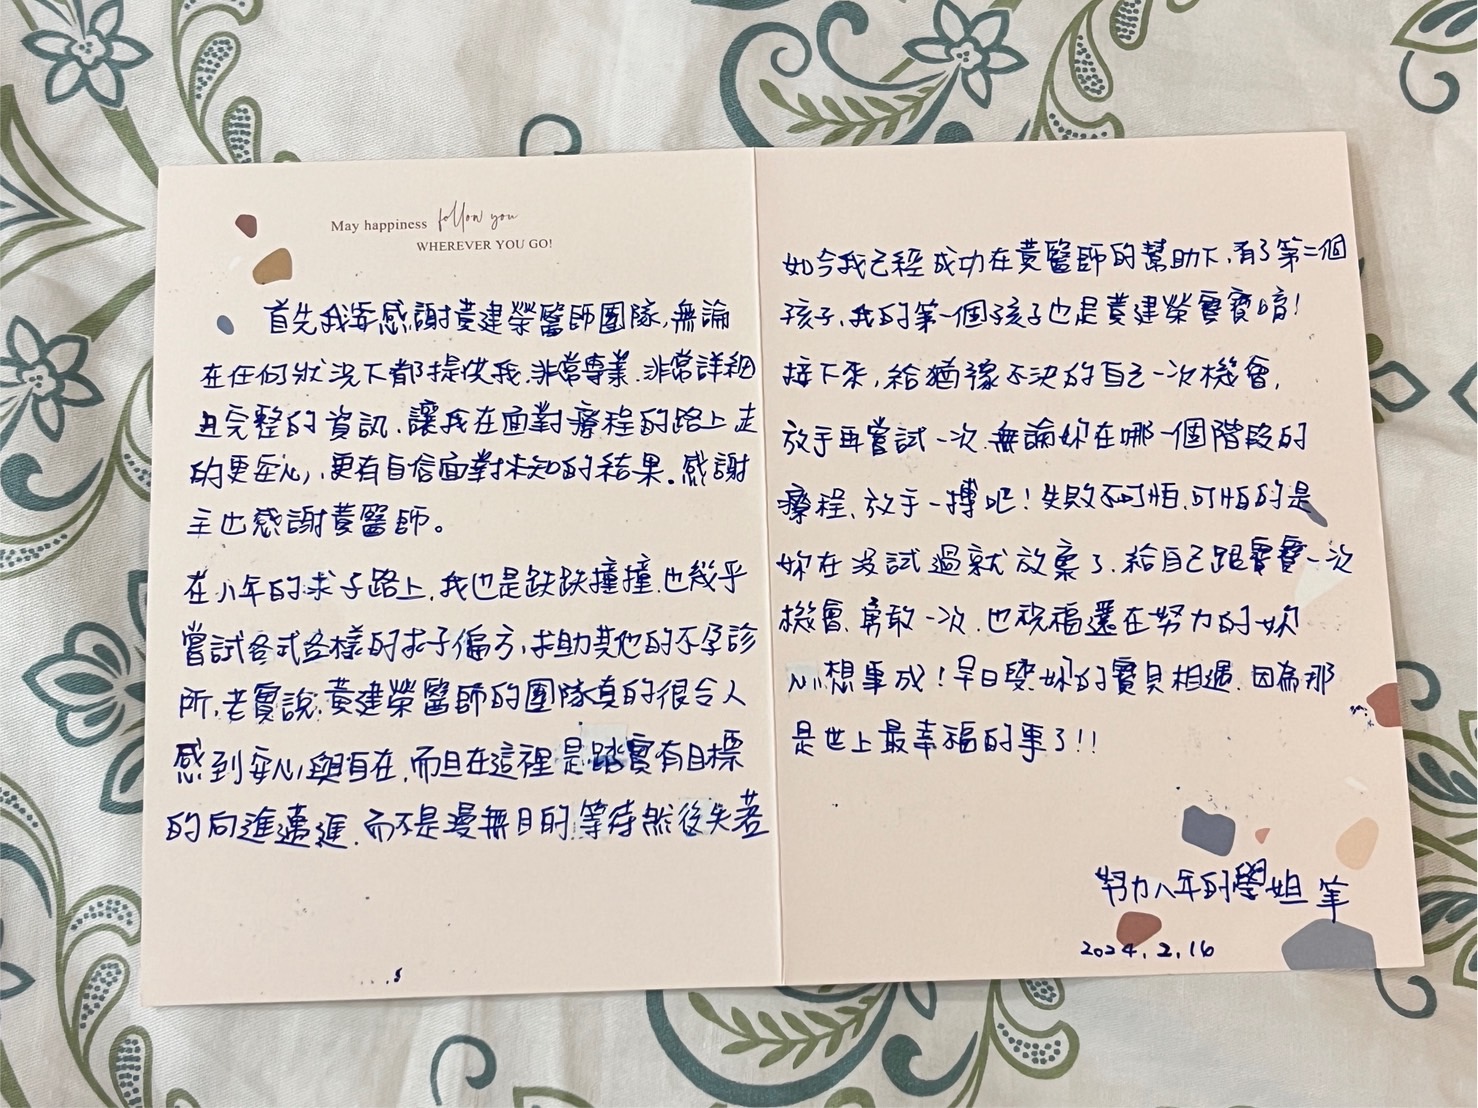 May happiness follow you
WHEREVER YOU GO!
首先我要感謝黃建榮醫師團隊,無論
在任何狀況下都提供我,非常專業、非常詳細
且完整的資訊、讓我在面對療程的路上走
的更安心,更有自信面對未知的結果。感謝
主也感謝黃醫師。
在八年的求子路上,我也是跌跌撞撞、也幾乎
嘗試各式各樣的求子偏方,求助其他的不孕診
所,老實說,黃建榮醫師的團隊真的很令人
感到安心與自在,而且在這裡是踏實有目標
的向進邁進,而不是漫無目的等待然後失落
如今我已經成功在黃醫師的幫助下,有了第二個
孩子,我的第一個孩子也是黃建榮寶寶唷!
接下來,給猶豫不決的自己一次機會,
放手再嘗試一次 無論妳在哪一個階段的
療程、放手一搏吧!失敗不可怕,可怕的是
妳在沒試過就放棄了、給自己跟寶寶一次
機會、勇敢一次、也祝福還在努力的妳
心想事成!早日與妳的寶貝相遇、因為那
是世上最幸福的事了!!
努力八年的學姐 筆
2024.2.16